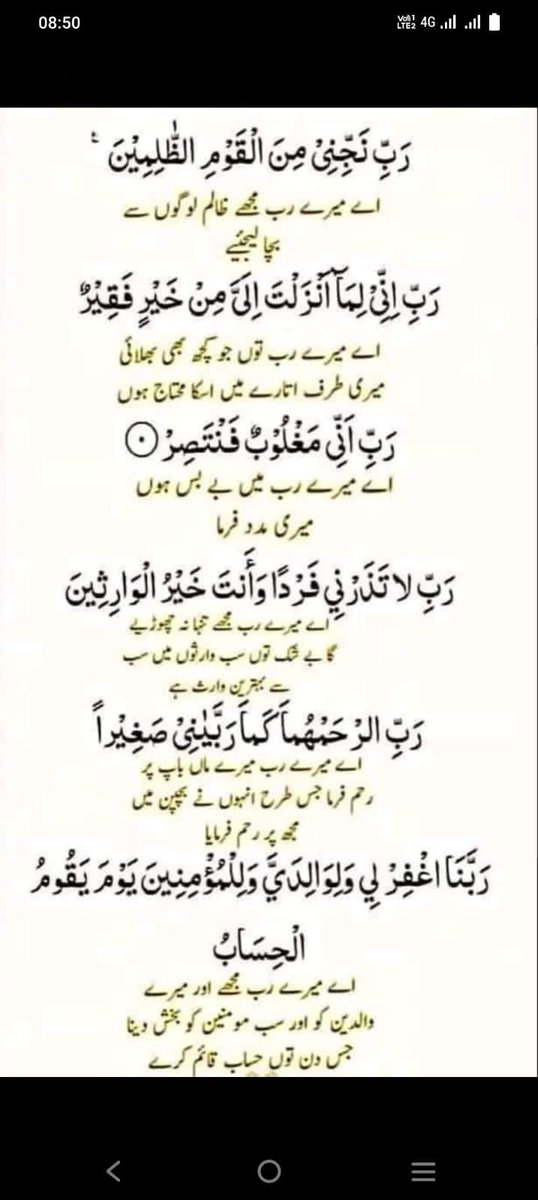 08:50
Vo)) LTE2 4G
رَبِّ نَجِّنِیْ مِنَ الْقَوْمِ الظّٰلِمِیْنَ
اے میرے رب مجھے ظالم لوگوں سے
بچا لیجئیے
رَبِّ اِنِّیْ لِمَاۤ اَنْزَلْتَ اِلَیَّ مِنْ خَیْرٍ فَقِیْرٌ
اے میرے رب توں جو کچھ بھی بھلائی
میری طرف اتارے میں اسکا محتاج ہوں
رَبِّ اَنِّیْ مَغْلُوْبٌ فَنْتَصِرْ ۝۰
اے میرے رب میں بے بس ہوں
میری مدد فرما
رَبِّ لا تَذَرْنِي فَرْدًا وَأَنتَ خَيْرُ الْوَارِثِينَ
اے میرے رب مجھے تنہا نہ چھوڑیے
گا بے شک توں سب وارثوں میں سب
سے بہترین وارث ہے
رَبِّ الرْحَمْهُمَا كَمَا رَبَّيٰنِیْ صَغِیْراً
اے میرے رب میرے ماں باپ پر
رحم فرما جس طرح انہوں نے بچپن میں
مجھ پر رحم فرمایا
رَبَّنَا اغْفِرْ لِي وَلِوَالِدَيَّ وَلِلْمُؤْمِنِينَ يَوْمَ يَقُومُ
الْحِسَابُ
اے میرے رب مجھے اور میرے
والدین کو اور سب مومنین کو بخش دینا
جس دن توں حساب قائم کرے